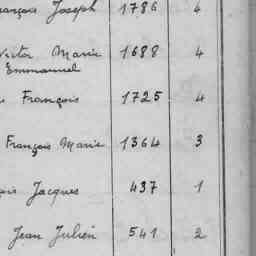 François Joseph 1786 4
Victor Marie 1688 4
Emmanuel
François 1725 4
François Marie 1364 3
Jacques 437 1
Jean Julien 541 2